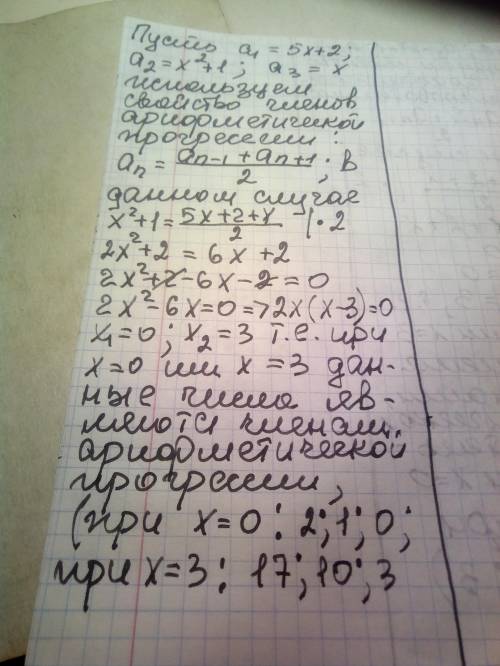 Пусть a₁ = 5x+2;
a₂ = x²+1; a₃ = x
используем
свойство членов
арифметической
прогрессии:
aₙ = (aₙ₋₁ + aₙ₊₁)/2; в
данном случае
x²+1 = (5x+2+x)/2 |·2
2x²+2 = 6x+2
2x²+2-6x-2=0
2x²-6x=0=>2x(x-3)=0
x₁=0; x₂=3 т.е. при
x=0 или x=3 дан-
ные числа яв-
ляются членами
арифметической
прогрессии,
(при x=0: 2; 1; 0;
при x=3: 17; 10; 3